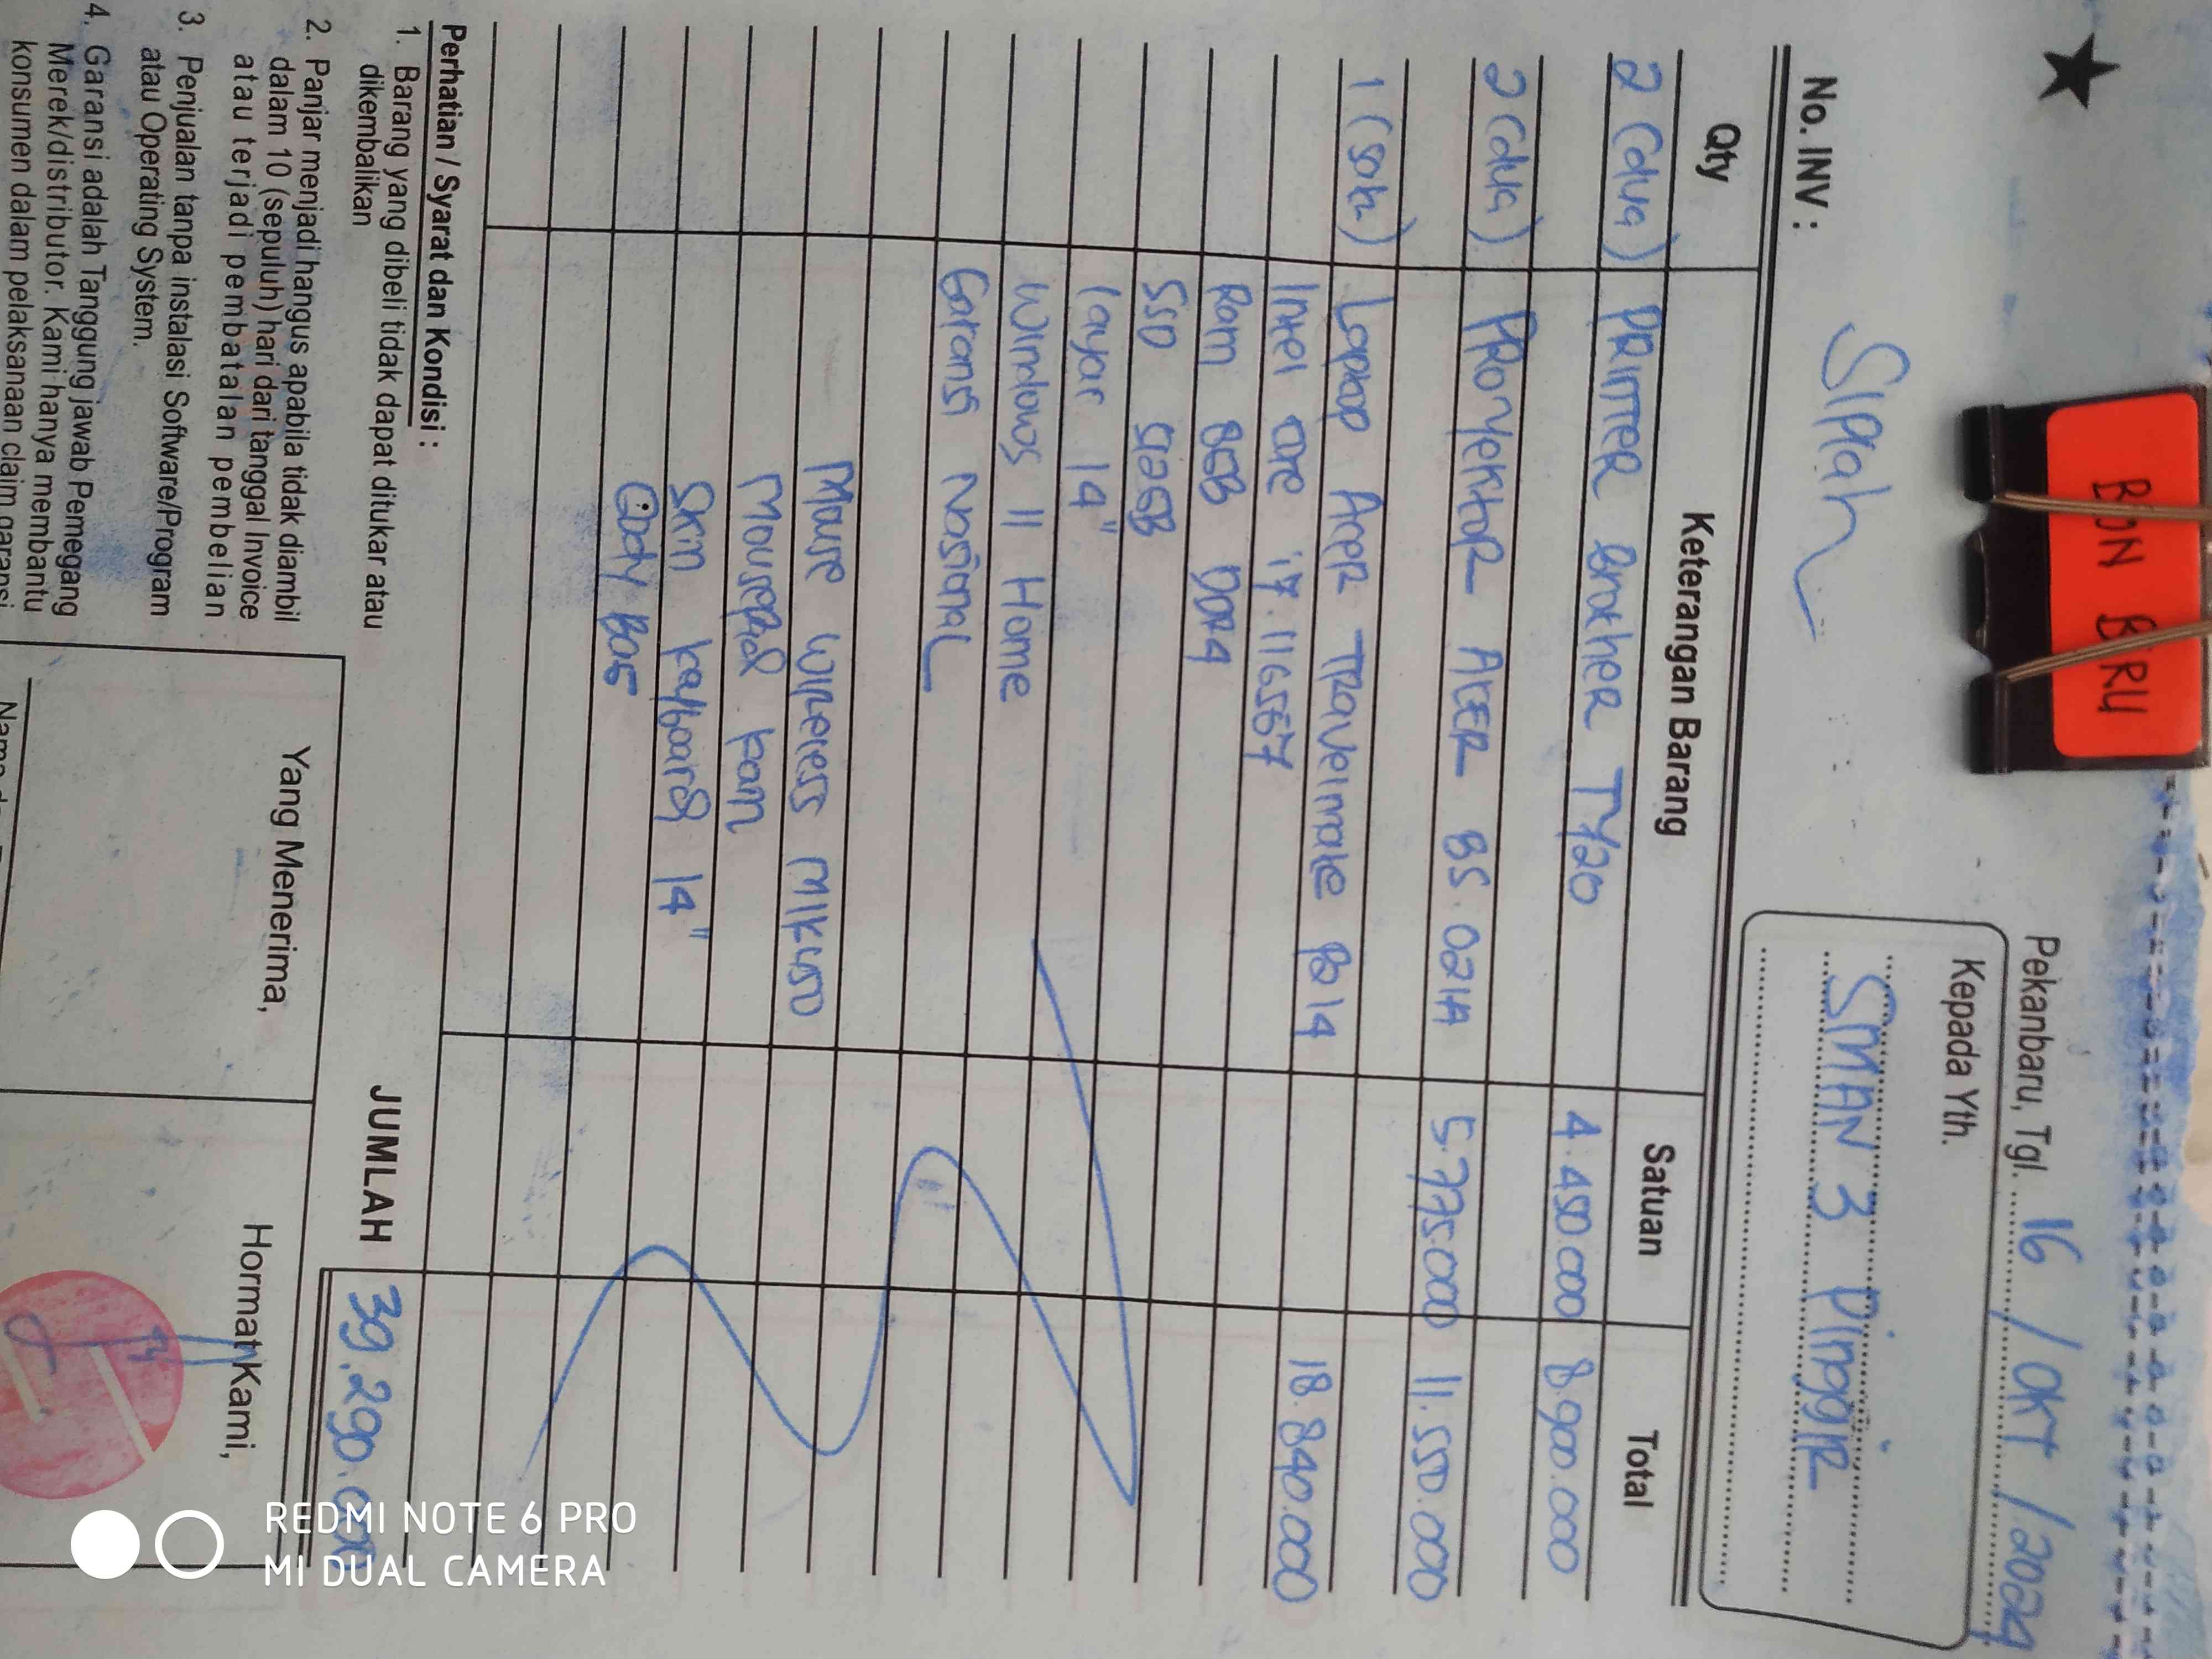 BON BRU
Pekanbaru, Tgl. 16 / OKT / 2024
Kepada Yth.
SMAN 3 Pinggir
No. INV : Siplah
Qty Keterangan Barang Satuan Total
2 (dua) PRINTER Brother T420 4.450.000 8.900.000
2 (dua) PROYEKTOR ACER BS.021A 5.775.000 11.550.000
1 (satu) Laptop Acer Travelmate P214 18.840.000
Intel Core i7.1165G7
Ram 8GB DDR4
SSD 512GB
layar 14"
Windows 11 Home
Garansi Nasional
Mouse Wireless MIKUSO
Mousepad
Skin keyboard 14"
JUMLAH 39.290.000
Perhatian / Syarat dan Kondisi :
1. Barang yang dibeli tidak dapat ditukar atau
dikembalikan
2. Panjar menjadi hangus apabila tidak diambil
dalam 10 (sepuluh) hari dari tanggal Invoice
atau terjadi pembatalan pembelian
3. Penjualan tanpa instalasi Software/Program
atau Operating System.
4. Garansi adalah Tanggung jawab Pemegang
Merek/distributor. Kami hanya membantu
konsumen dalam pelaksanaan claim garansi
Yang Menerima,
Hormat Kami,
REDMI NOTE 6 PRO
MI DUAL CAMERA